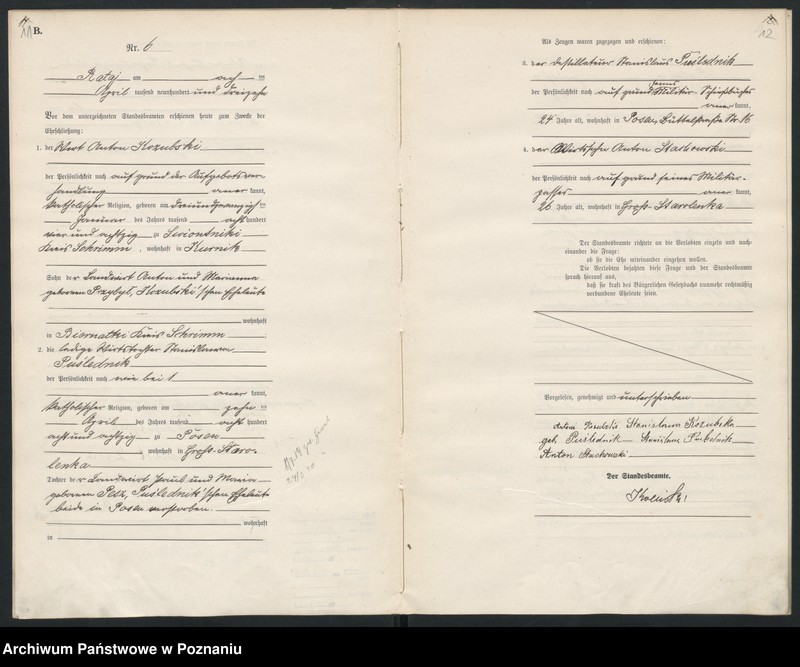 11 B.
Nr. 6
Rataj am ach ten
April tausend neunhundert und dreizehn
Vor dem unterzeichneten Standesbeamten erschienen heute zum Zwecke der
Eheschließung:
1. der Wirt Anton Kozubski
der Persönlichkeit nach auf grund der Aufgebotsver-
handlung aner kannt,
katholischer Religion, geboren am dreiundzwanzigsten
Januar des Jahres tausend acht hundert
vier und achtzig zu Swiontniki
Kreis Schrimm, wohnhaft in Kurnik
Sohn der Landwirt Anton und Marianna
geborenen Przybył, Kozubski'schen Eheleute
wohnhaft
in Biernatki Kreis Schrimm
2. die ledige Wirtstochter Stanislawa
Puślednik
der Persönlichkeit nach wie bei 1
aner kannt,
katholischer Religion, geboren am zehn ten
April des Jahres tausend acht hundert
acht und achtzig zu Posen
wohnhaft in Groß-Staro-
lenka
Tochter der Landwirt und Maria
geborenen Pelz, Puślednik'schen Eheleute
beide in Posen verstorben.
wohnhaft
in
12
Als Zeugen waren zugezogen und erschienen:
3. der Destillateur Stanislaus Puślednik
der Persönlichkeit nach auf grund seines Militär-
aner kannt,
24 Jahre alt, wohnhaft in Posen, Büttelstraße Nr. 16
4. der Wirtssohn Anton Stachowski
der Persönlichkeit nach auf grund seines Militär-
passes aner kannt,
26 Jahre alt, wohnhaft in Groß-Starolenka
Der Standesbeamte richtete an die Verlobten einzeln und nach-
einander die Frage:
ob sie die Ehe miteinander eingehen wollen.
Die Verlobten bejahten diese Frage und der Standesbeamte
sprach hierauf aus,
daß sie kraft des Bürgerlichen Gesetzbuchs nunmehr rechtmäßig
verbundene Eheleute seien.
Vorgelesen, genehmigt und unterschrieben
Antoni Kozubski Stanisława Kozubska
geb. Puślednik Stanisław Puślednik
Anton Stachowski
Der Standesbeamte.
Archiwum Państwowe w Poznaniu